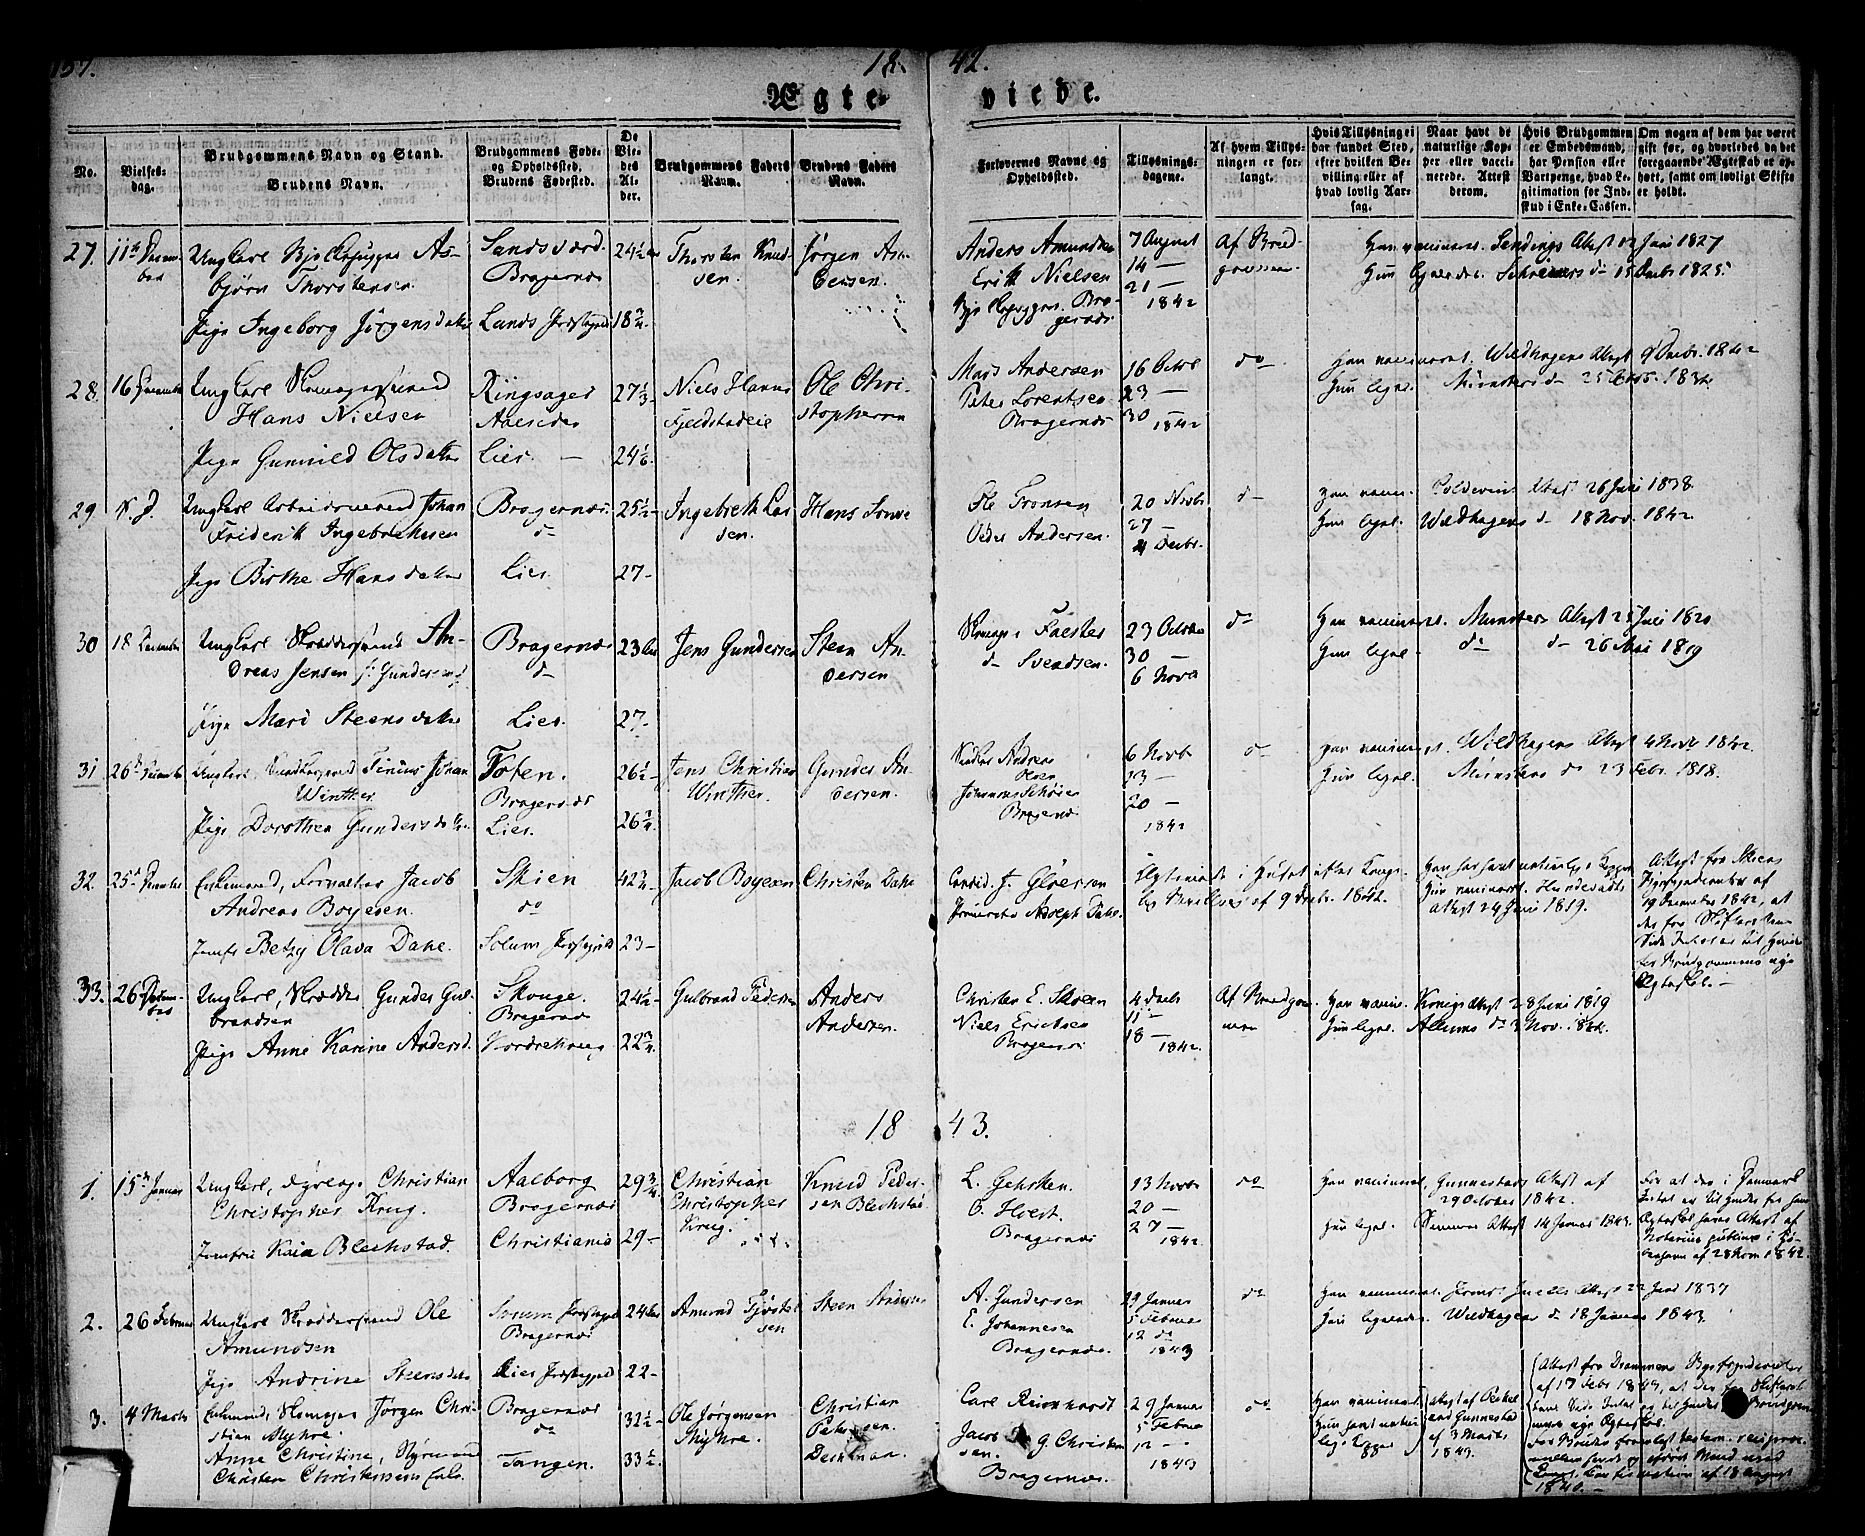 157.
18
42.
Ægte-
viede.
No.
Vielses-
dag.
Brudgommens Navn og Stand.
Brudens Navn.
Brudgommens Føde-
og Opholdssted.
Brudens Fødested.
De
Vie-
des
Al-
der.
Brudgommens Faders
Navn.
Brudens Faders
Navn.
Forlovernes Navne og
Opholdssted.
Tillysnings-
dagene.
Af hvem Tillys-
ningen er for-
langt.
Hvis Tillysning ei
har fundet Sted,
efter hvilken Be-
villing eller af
hvad lovlig Aar-
sag.
Naar havt de
naturlige Kop-
per eller vacci-
nerede. Attest
derom.
Hvis Brudgommen
er Embedsmand,
har Pension eller
Vartpenge, hvad Le-
gitimation for Ind-
skud i Enke-Cassen.
Om nogen af dem har været
gift før, og hvorledes da det
foregaaende Ægteskab er op-
hørt, samt om lovligt Skifte
er holdt.
27. 11te Decem-
ber
Ungkarl As-
bjørn Thorstensen
Pige Ingeborg Jørgensdatter
Sandsværd
Bragernæs
Lands Præstegjeld
24½ Aar
18¾
Thorsten Knud-
sen.
Jørgen As-
bersen.
Anders Amundsen
Erik Nielsen
Bra-
gernæs
7 August
14 —
21 —
1842
Af Brud-
gommen
Han vaccineret. Attest 12 Juni 1827
Hun ligeledes. Schreiners do 15 Decbr 1825
28. 16 December
Ungkarl Skomagersvend
Hans Nielsen
Pige Gunnild Olsdatter
Ringsager
Lier —
27⅓
24⅙
Niels Hansen
Fjeldstadeie
Ole Chri-
stophersen
Mads Andersen
Peter Lorentsen
Bragernæs
16 Octbr
23 —
30 —
1842
do
Han vaccineret. Wildhagens Attest 9 Decbr. 1842
Hun ligel. Münsters do 25 1834
29 S. D.
Ungkarl Arbeidsmand Johan
Friderik Ingebrethsen
Pige Birthe Hansdatter
Bragernæs
do
Lier
25½
27
Ingebreth Lar-
sen.
Hans
Ole Tronsen
Peder Andersen.
20 Novbr
27 —
4 Decbr.
do
Han vaccin. Attest 26 Juni 1838
Hun ligel. Wildhagens do 18 Nov. 1842
30 18 December
Ungkarl Skræddersvend An-
dreas Jensen
Pige Mari Steensdatter
Bragernæs
do
Lier.
23 Aar
27
Jens Gundersen
Steen An-
dersen
Skomager Faester
do Svendsen.
23 October
30 —
6 Novbr
do
Han vaccineret. Münsters Attest 25 Juni 1820
Hun ligel. do do 26 Mai 1819
31 26de December
Ungkarl, Tinius Johan
Winther
Pige Dorothea Gundersdatter
Toten.
Bragernæs
Lier.
26½
26¾
Jens Christian
Winther.
Gunder An-
dersen.
Snedker Andreas
Olsen
Johannes
Bragernæs
6 Novb
13 —
20 —
1842
do
Han vaccineret. Wildhagens Attest 4 Novb 1842
Hun ligel. Münsters do 23 Febr. 1818.
32. 25de December
Enkemand, Forvalter Jacob
Andreas Boyesen.
Jomfr Betzy Olava Dahl.
Skien
do
Solum Præstegjeld
42¾
23
Jacob Boyesen
Christen Dahl
Candid. J. Gløersen
Adolph Dahl.
i Huset efter Konge-
lig Bevilling af 9 Decbr. 1842.
Han har havt naturlige Kopper
Hun vaccineret.
Attest 24 Juni 1819.
Attest fra Skiens
af
19 December 1842, at
der fra Skifterettens
Side Intet er til Hinder
for Brudgommens nye
Ægteskab. —
33. 26 Decem-
ber
Ungkarl, Skrædder Gunder Gul-
brandsen
Pige Anne Karine Andersd.
Skouge.
Bragernæs
Norderhoug
24½
22¾
Gulbrand Pedersen
Anders
Andersen.
Christen E. Skoen
Niels Ericksen
Bragernæs
4 Decb
11 —
18 —
1842.
Af Brudgom-
men
Han vaccin. Kønigs Attest 28 Juni 1819
Hun ligel. Allums do 3 Nov. 1842.
18
43.
1. 15de Januar
Ungkarl, Christian
Christopher Krug.
Jomfru Kaia Blechstad.
Aalborg
Bragernæs
Christiania
29¾
29
Christian
Christopher
Krug.
Knud Peder-
sen Blechstad
L. Gehrken.
C. Holst.
Bragernæs
13 Novbr
20 —
27 —
1842.
do
Han vaccineret, Gunnestads Attest af
29 October 1842.
Hun ligel. Attest 14 Januar 1843.
For at der i Danmark
Intet er til Hinder for hans
Ægteskab haves Attest af
Notarius publicus i Kjø-
benhavn af 28 Novr 1842.
2. 26 Februar
Ungkarl Skræddersvend Ole
Amundsen
Pige Andrine Steensdatter
Præstegjeld
Bragernæs
Lier Præstegjeld
24 Aar
22
Amund Fjøstel-
sen
Steen Andersen
A. Gundersen
E. Johannesen
Bragernæs.
29 Januar
5 Februar
12 do
1843
do
Han vaccineret. Attest 22 Juni 1837
Hun ligeledes. Wildhagen do 18 Januar 1843.
3. 4 Marts
Enkemand, Skomager Jørgen Chri-
stian Myhre.
Anne Christine, Styrmand
Christen Christensens Enke
Bragernæs
do
Tangen.
32½
33½
Ole Jørgensen
Myhre.
Christian
Petersen
Dechman.
Carl Reinhardt
Jacob G. Christen-
sen.
Bragernæs.
29 Januar
5 Februar
12 —
1843
do
Han vaccineret
Hun havt natur-
lige Kopper
Attest af
Gunnestad
af 3 Marts
1843.
Attest fra Drammens Byefogderie
af 17 Febr 1843, at der fra Skifterettens
Side Intet er til Hinder Brudgom-
mens nye Ægteskab.
For Bruden fremlagt
af 18 August
1840. —